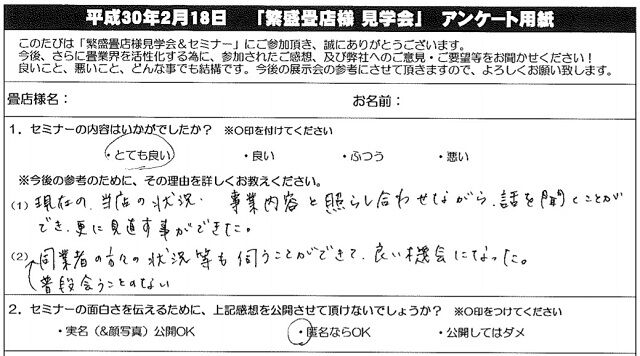 平成30年2月18日　「繁盛畳店様 見学会」　アンケート用紙
このたびは「繁盛畳店様見学会＆セミナー」にご参加頂き、誠にありがとうございます。
今後、さらに畳業界を活性化する為に、参加されたご感想、及び弊社へのご意見・ご要望等をお聞かせください！
良いこと、悪いこと、どんな事でも結構です。今後の展示会の参考にさせて頂きますので、よろしくお願い致します。
畳店様名：　　　　　お名前：
1．セミナーの内容はいかがでしたか？　※○印を付けてください
・とても良い　　・良い　　・ふつう　　・悪い
※今後の参考のために、その理由を詳しくお教えください。
(1) 現在の、当店の状況、事業内容と照らし合わせながら、話を聞くことが
でき、更に見直す事ができた。
(2) 同業者の方々の状況等も伺うことができて、良い機会になった。
普段会うことのない
2．セミナーの面白さを伝えるために、上記感想を公開させて頂けないでしょうか？　※○印をつけてください
・実名（＆顔写真）公開OK　　・匿名ならOK　　・公開してはダメ